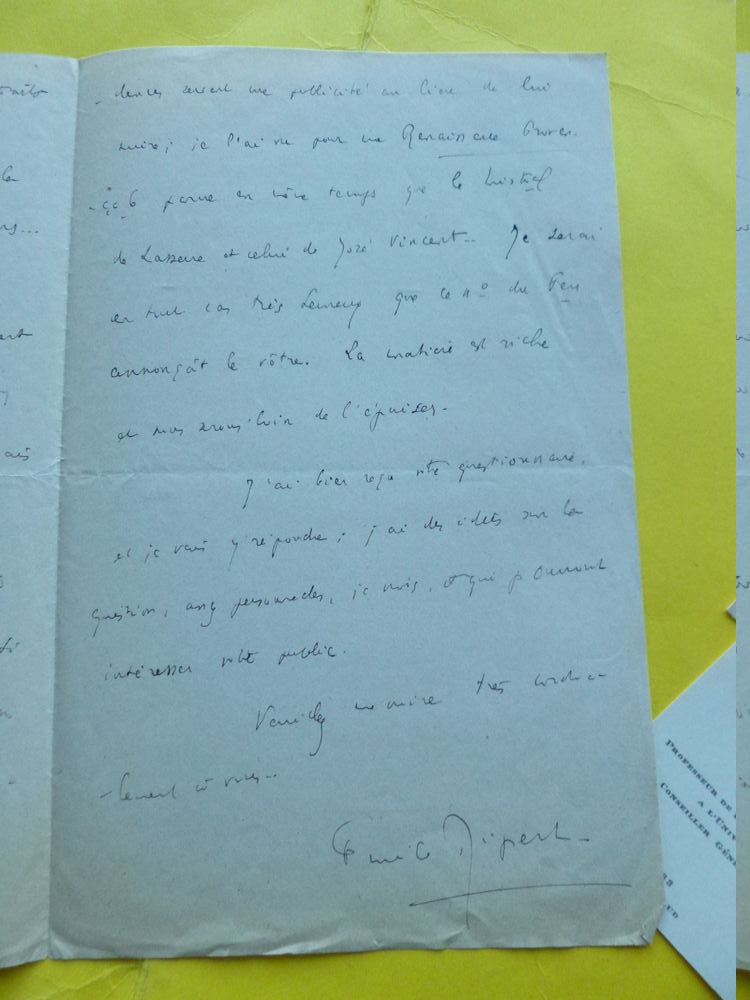 - dances seront une publicité au lieu de lui
nuire ; je l'ai vu pour ma Renaissance Proven-
- çale parue en même temps que le Mistral
de Lasserre et celui de José Vincent... Je serai
en tout cas très heureux que ce n° du Feu
annonçât le vôtre. La matière est riche
et nous sommes loin de l'épuiser.
J'ai bien reçu votre questionnaire,
et je vais y répondre ; j'ai des idées sur la
question, assez personnelles, je crois, et qui pourront
intéresser votre public.
Veuillez me croire très cordia-
- lement à vous...
Emile Ripert
PROFESSEUR DE
A L'UNIV
CONSEILLER GÉN